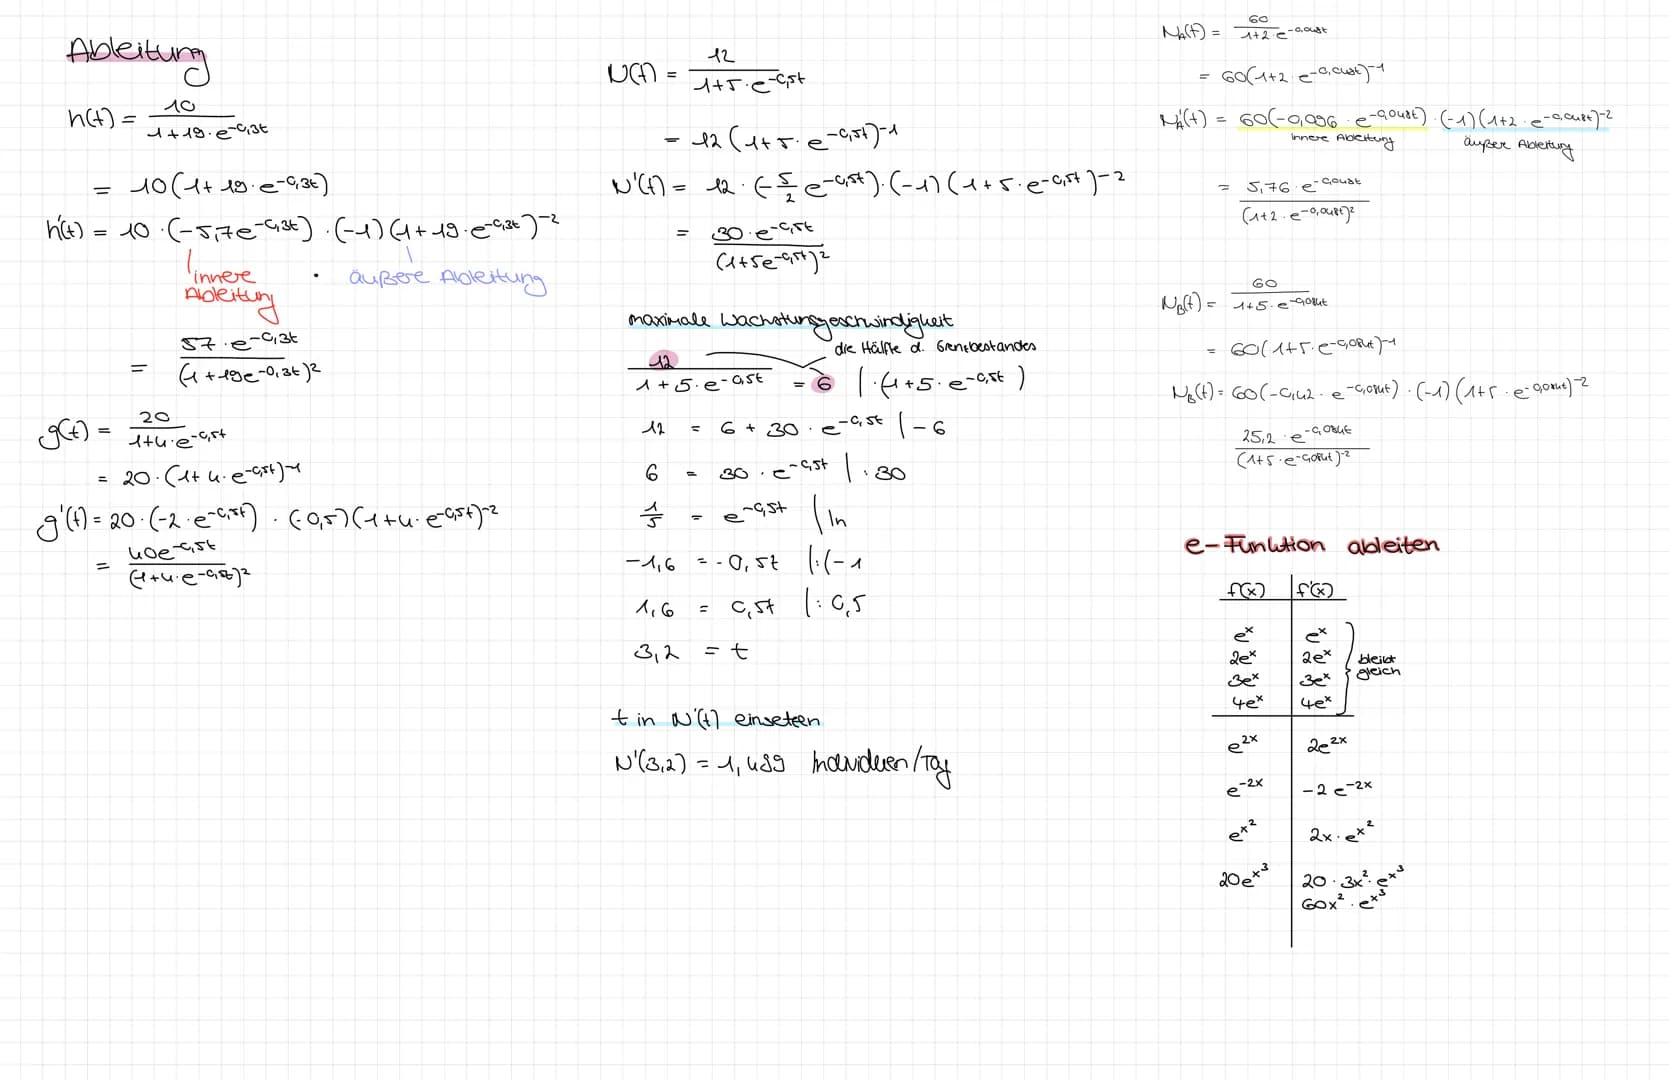 Ableitung
h(t) = 10 / (1+19·e^-0,3t)
= 10(1+19·e^-0,3t)
h'(t) = 10·(-5,7e^-0,3t)·(-1)(1+19·e^-0,3t)^-2
innere Ableitung · äußere Ableitung
= 57·e^-0,3t / (1+19e^-0,3t)^2
g(t) = 20 / (1+4·e^-0,5t)
= 20·(1+4·e^-0,5t)^-1
g'(t) = 20·(-2·e^-0,5t)·(-0,5)(1+4·e^-0,5t)^-2
= 40e^-0,5t / (1+4·e^-0,5t)^2
N(t) = 12 / (1+5·e^-0,5t)
= 12(1+5·e^-0,5t)^-1
N'(t) = 12·(-5/2 e^-0,5t)·(-1)(1+5·e^-0,5t)^-2
= 30·e^-0,5t / (1+5e^-0,5t)^2
maximale Wachstumsgeschwindigkeit
die Hälfte d. Grenzbestandes
12 / (1+5·e^-0,5t) = 6 |·(1+5·e^-0,5t)
12 = 6 + 30·e^-0,5t |-6
6 = 30·e^-0,5t |:30
1/5 = e^-0,5t |ln
-1,6 = -0,5t |:(-1
1,6 = 0,5t |:0,5
3,2 = t
t in N'(t) einsetzen
N'(3,2) = 1,499 Individuen/Tag
N_A(t) = 60 / (1+2·e^-0,048t)
= 60(1+2·e^-0,048t)^-1
N_A'(t) = 60(-0,096·e^-0,048t)·(-1)(1+2·e^-0,048t)^-2
innere Ableitung äußere Ableitung
= 5,76·e^-0,048t / (1+2·e^-0,048t)^2
N_B(t) = 60 / (1+5·e^-0,084t)
= 60(1+5·e^-0,084t)^-1
N_B'(t) = 60(-0,42·e^-0,084t)·(-1)(1+5·e^-0,084t)^-2
25,2·e^-0,084t / (1+5·e^-0,084t)^-2
e-Funktion ableiten
f(x) | f'(x)
e^x | e^x
2e^x | 2e^x
3e^x | 3e^x
4e^x | 4e^x
bleibt
gleich
e^2x | 2e^2x
e^-2x | -2e^-2x
e^x^2 | 2x·e^x^2
20e^x^3 | 20·3x^2·e^x^3
60x^2·e^x^3